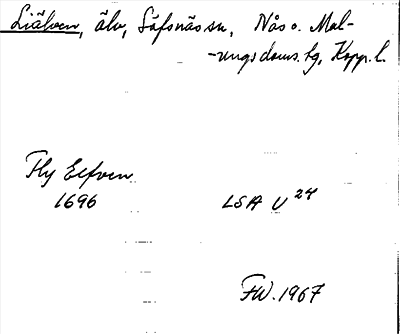 Liälven, älv, Säfsnäs sn, Nås o. Mal-
-ungs doms. hg, Kopp. l.
Fly Elfven
1696 LSA U 24
FW. 1967